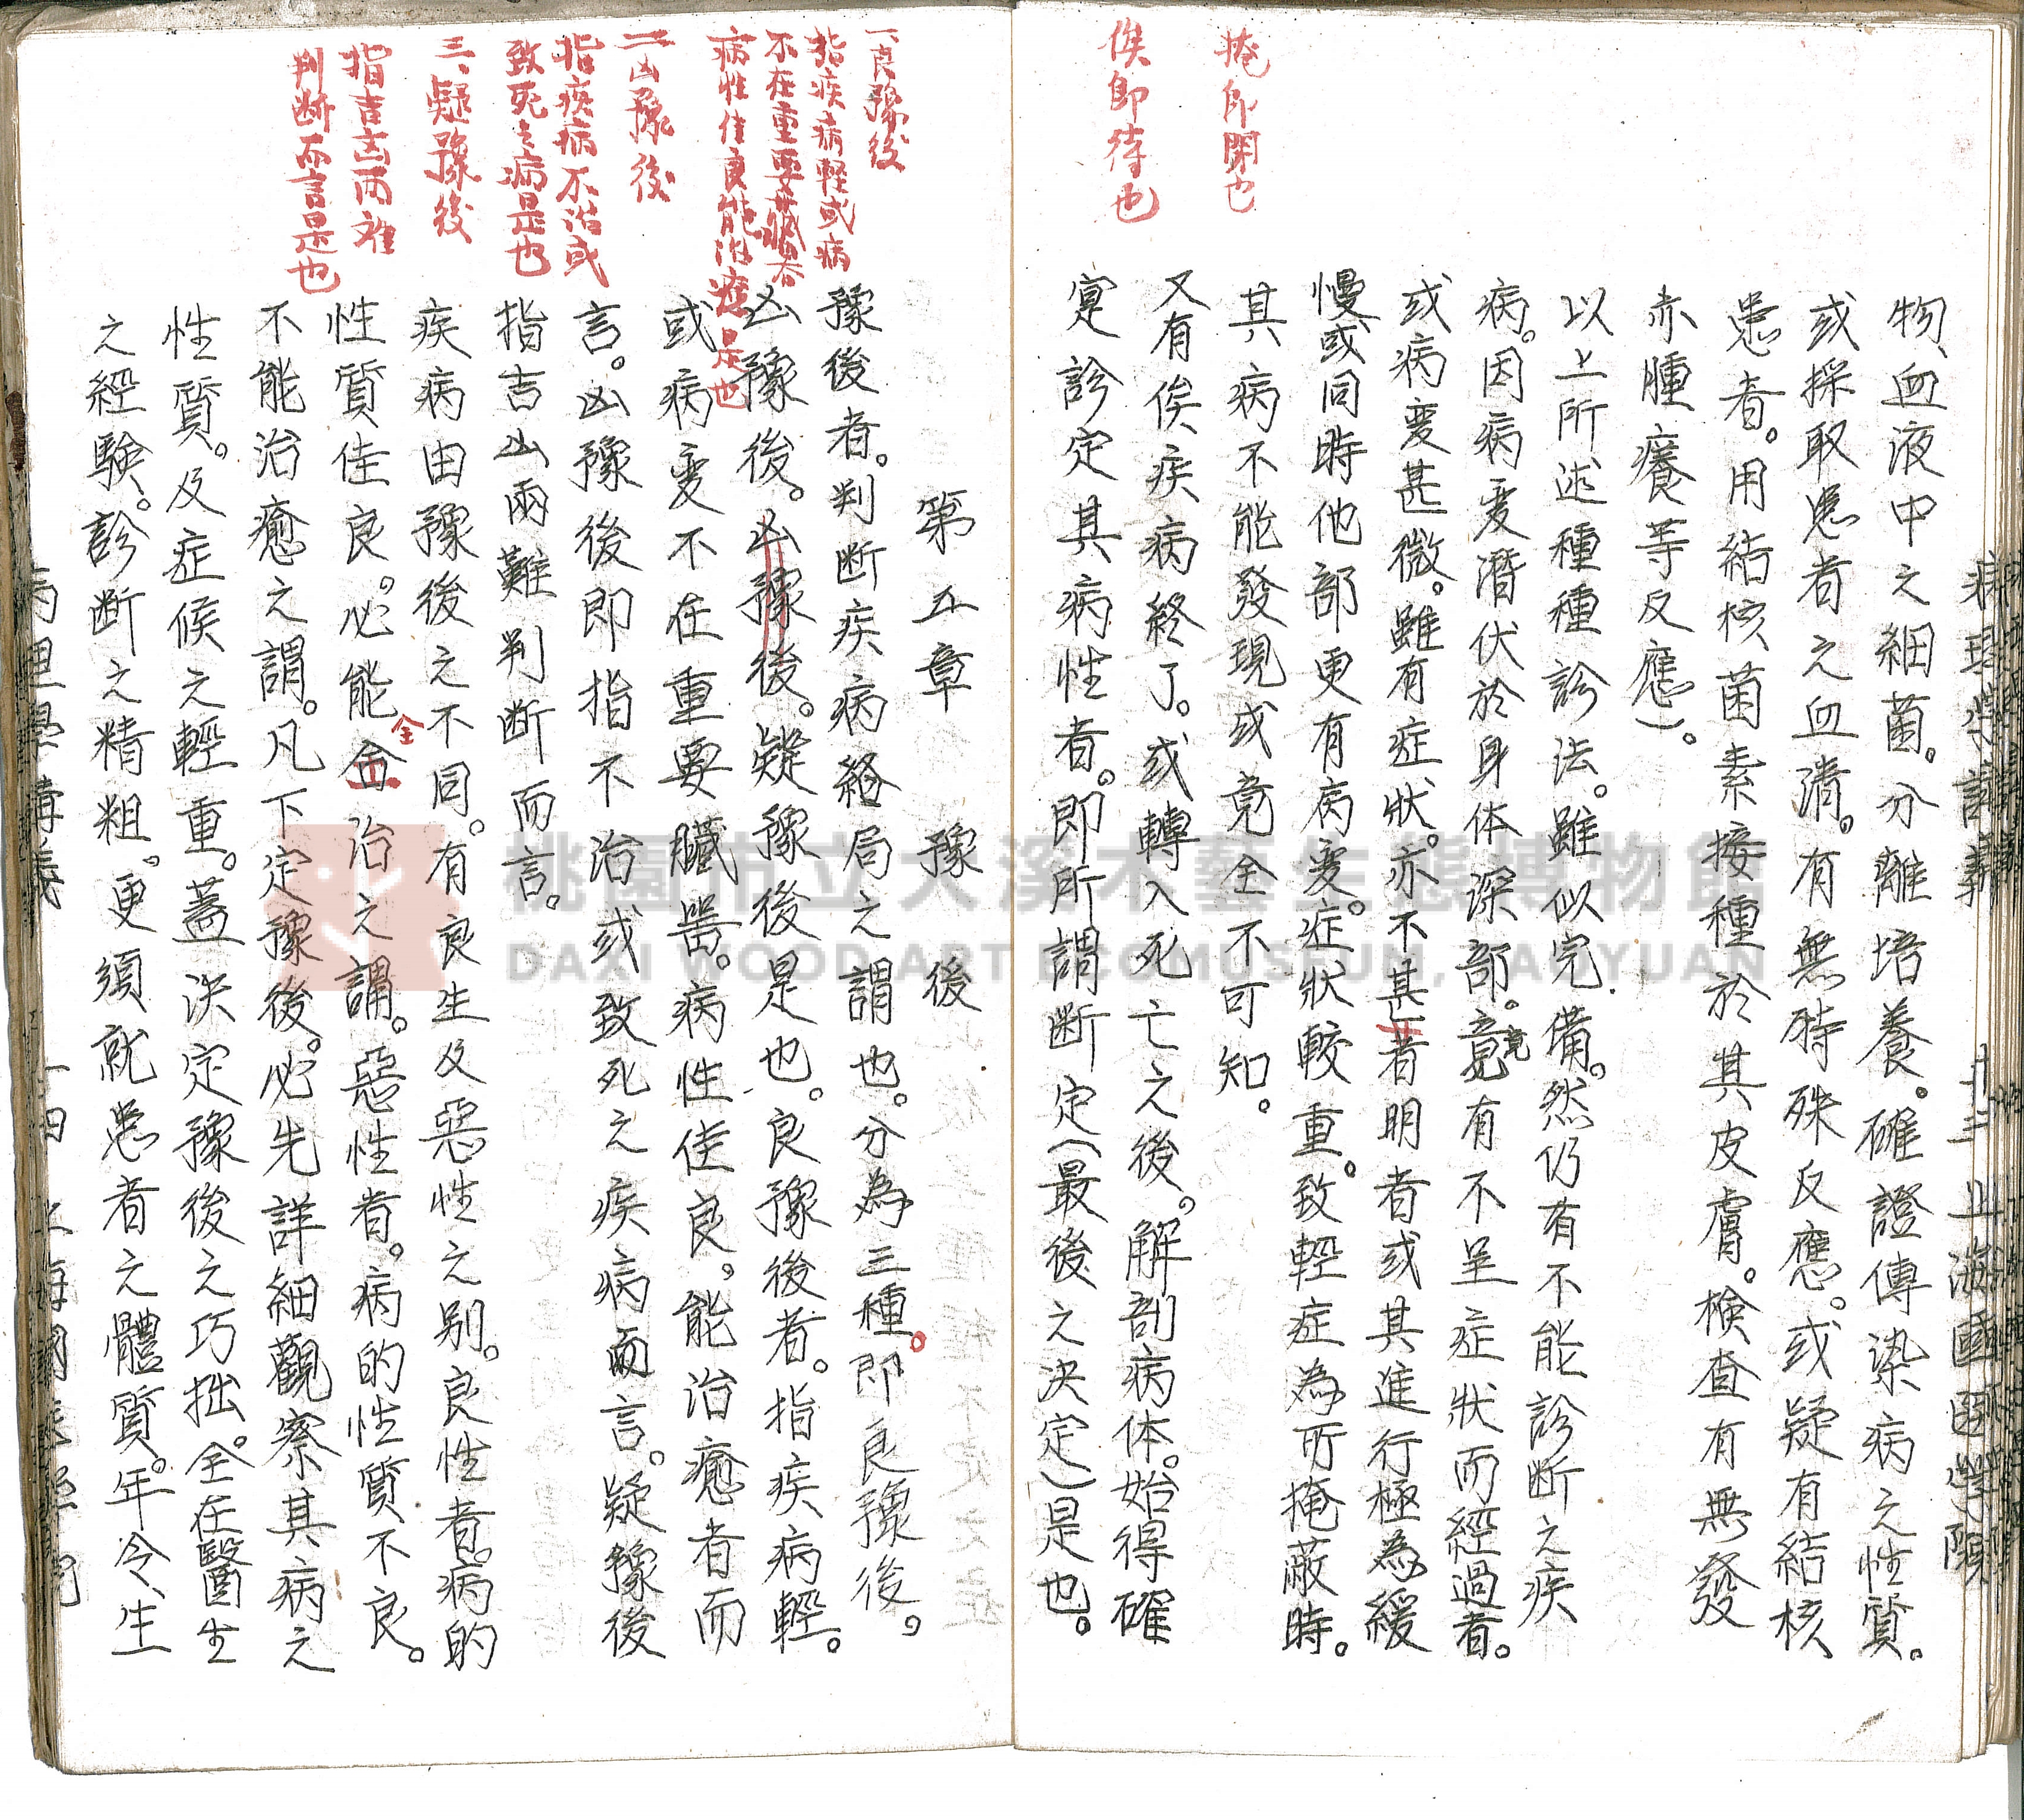 掩即閉也
俟即待也
物、血液中之細菌。分離培養。確證傳染病之性質。
或採取患者之血清。有無特殊反應。或疑有結核
患者。用結核菌素接種於其皮膚。檢查有無發
赤腫癢等反應）。
以上所述種種診法。雖似完備。然仍有不能診断之疾
病。因病变潛伏於身体深部。竟有不呈症狀而經過者。
或病变甚微。雖有症狀。亦不甚著明者或其進行極為緩
慢或同時他部更有病变。症狀較重。致輕症為所掩蔽時。
其病不能發現或竟全不可知。
又有俟疾病終了。或轉入死亡之後。解剖病体。始得確
定診定其病性者。即所謂断定（最後之决定）是也。
一、良豫後
指疾病軽或病
不在重要臓器
病性佳良能治癒是也
二、凶豫後
指疾病不治或
致死之病是也
三、疑豫後
指吉凶两难
判断而言是也
第五章 豫後
豫後者。判断疾病経局之謂也。分為三種。即良豫後。
凶豫後。凶豫後。疑豫後是也。良豫後者。指疾病輕。
或病变不在重要臟器。病性佳良。能治癒者而
言。凶豫後即指不治或致死之疾病而言。疑豫後
指吉凶兩難判断而言。
疾病由豫後之不同。有良生及惡性之别。良性者。病的
性質佳良。必能全治之謂。惡性者。病的性質不良。
不能治癒之謂。凡下定豫後。必先詳細觀察其病之
性質。及症候之輕重。蓋决定豫後之巧拙。全在醫生
之經験。診断之精粗。更須就患者之體質。年令、生
桃園市立大溪木藝生態博物館
DAXI WOOD ART ECOMUSEUM, TAOYUAN